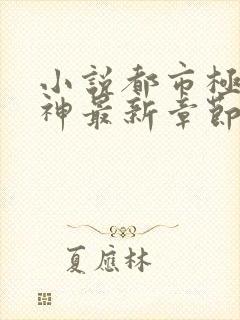 小説都市極
神最新章節
夏應林